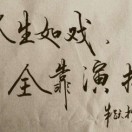 人生如戏、
全靠演技